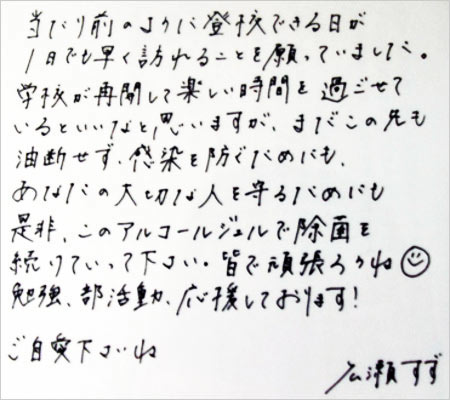 当たり前のように登校できる日が
1日でも早く訪れることを願っていました。
学校が再開して楽しい時間を過ごせて
いるといいなと思いますが、まだこの先も
油断せず、感染を防ぐためにも、
あなたの大切な人を守るためにも
是非、このアルコールジェルで除菌を
続けていって下さい。皆で頑張ろうね☺
勉強、部活動、応援しております!
ご自愛下さいね
広瀬すず